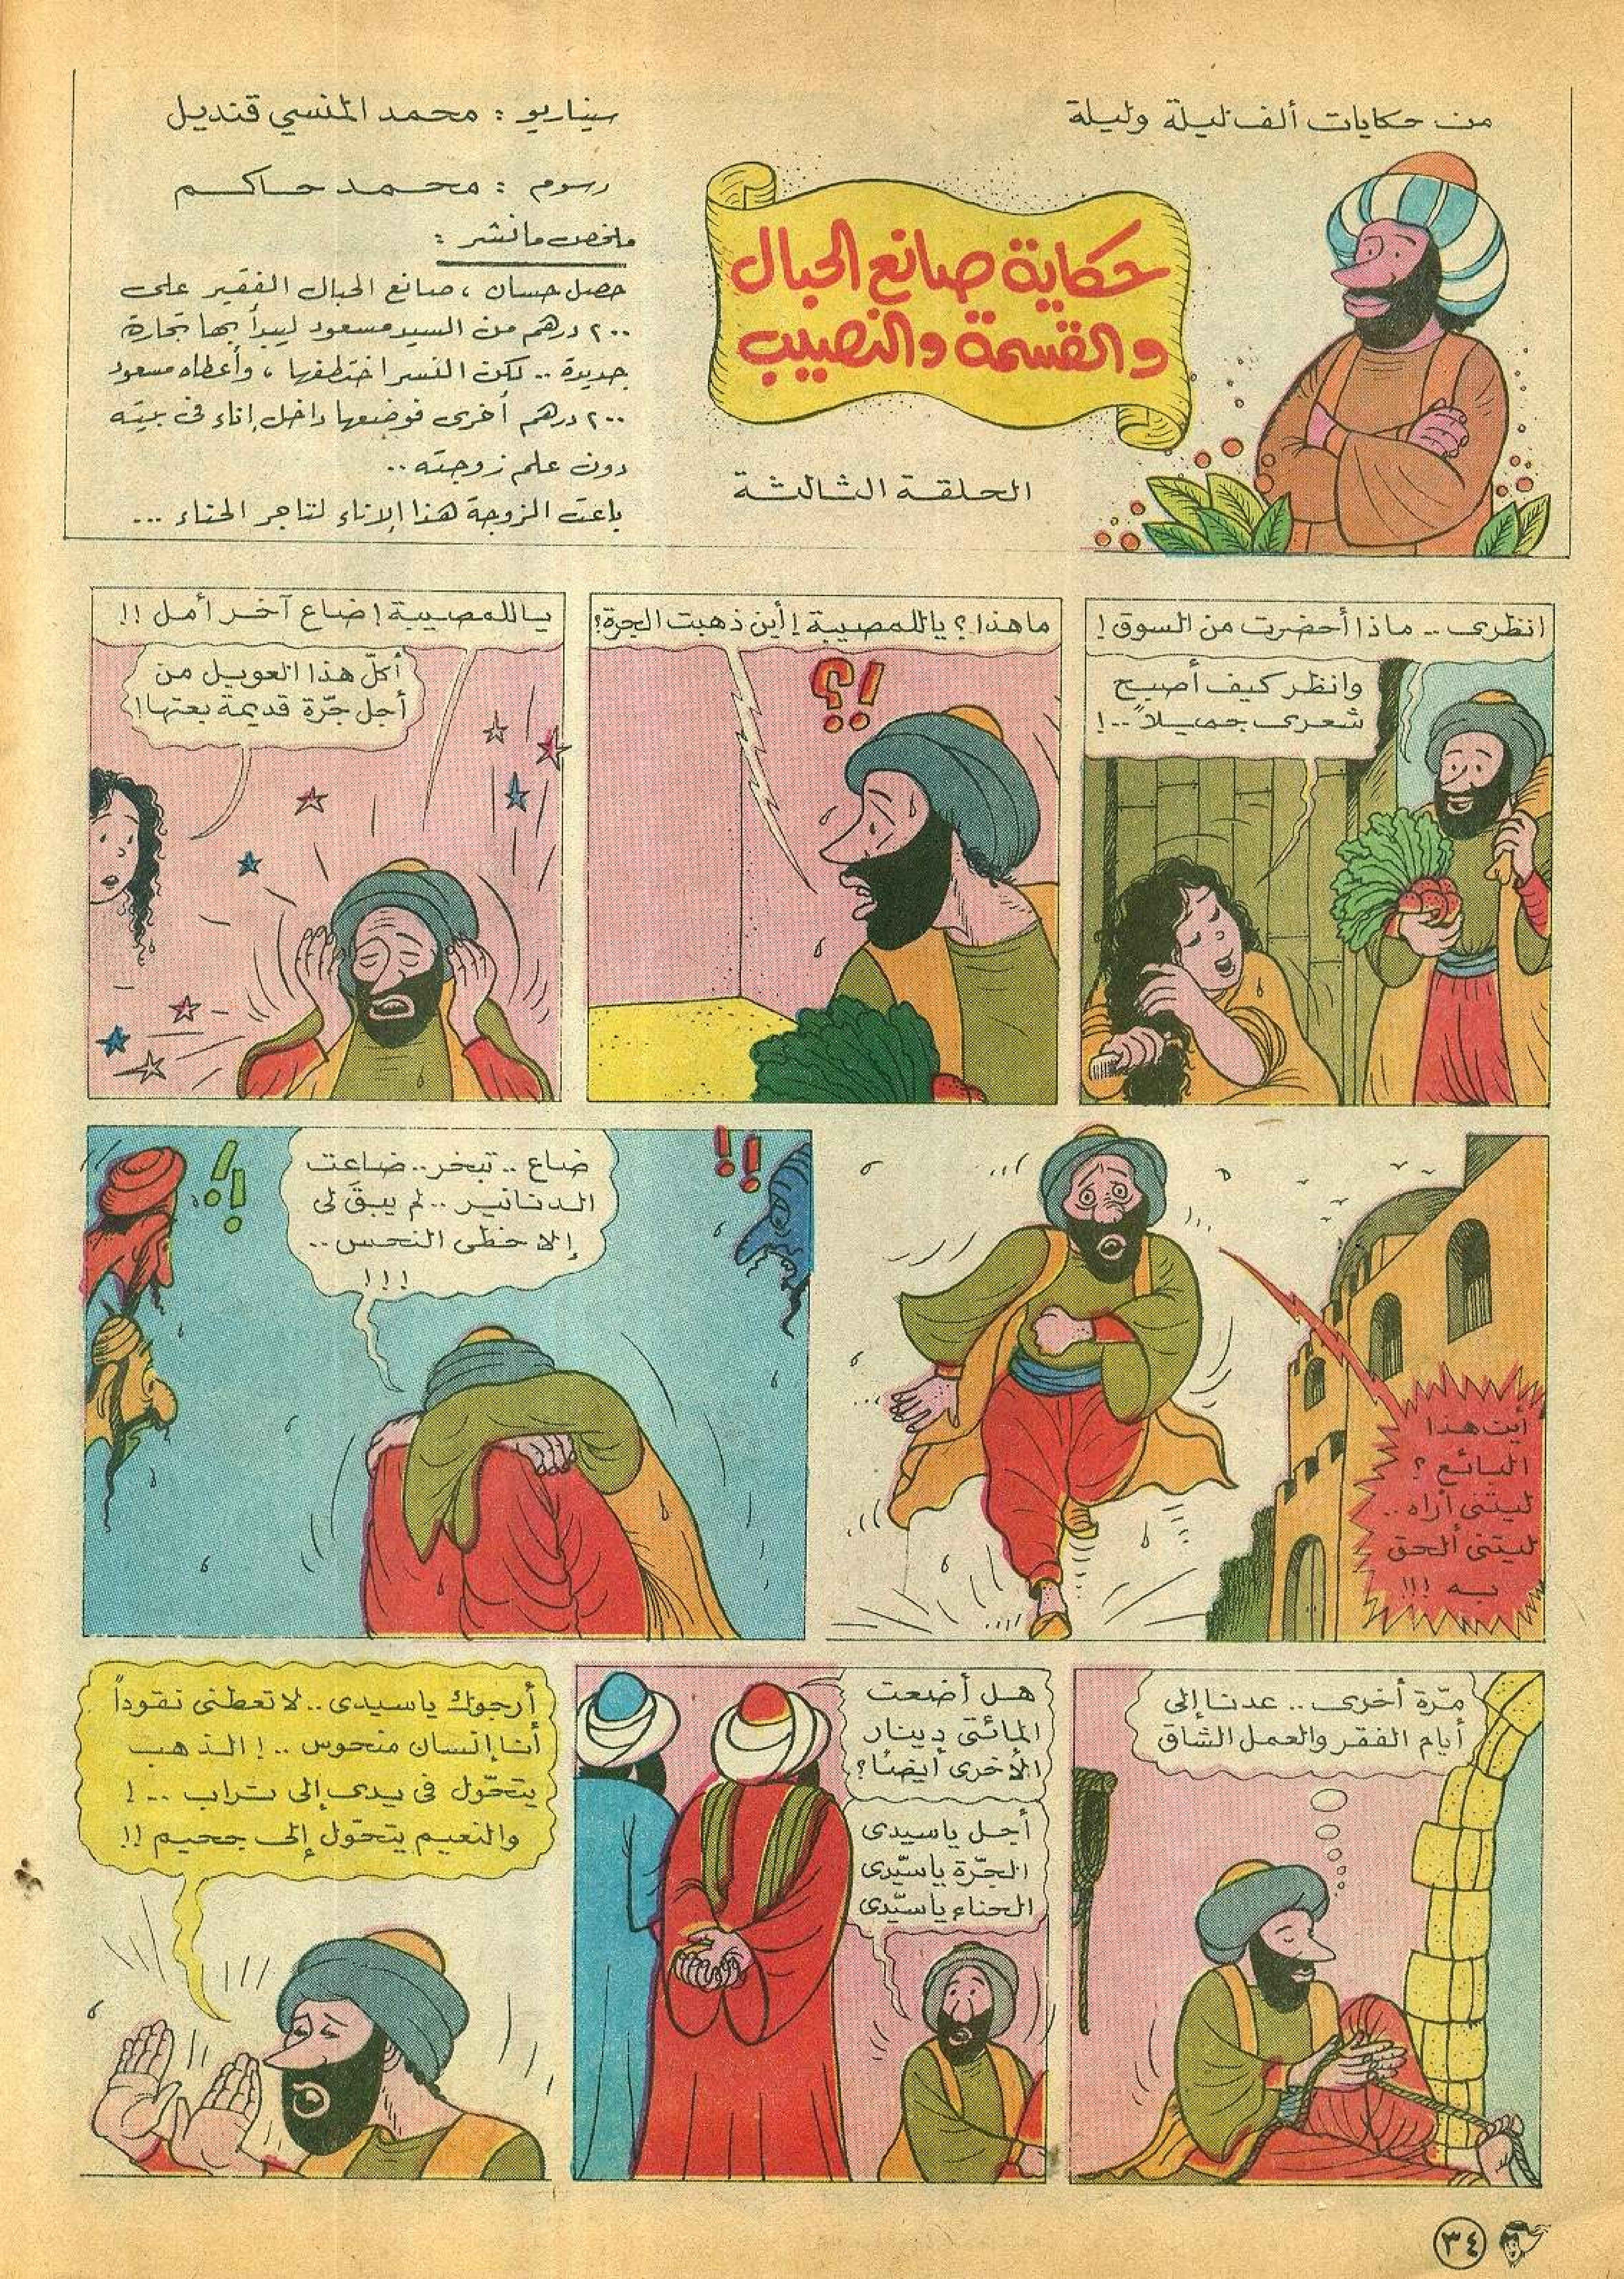 من حكايات ألف ليلة وليلة
حكاية صانع الحبال
والقسمة والنصيب
الحلقة الثالثة
سيناريو : محمد المنسي قنديل
رسوم : محمد حاكم
ملخص ما نشر :
حصل حسان ، صانع الحبال الفقير على
٢٠٠ درهم من السيد مسعود ليبدأ بها تجارة
جديدة .. لكن النسر اختطفها ، وأعطاه مسعود
٢٠٠ درهم أخرى فوضعها داخل إناء فى بيته
دون علم زوجته ..
باعت الزوجة هذا الإناء لتاجر الحناء ...
انظرى .. ماذا أحضرت من السوق !
وانظر كيف أصبح
شعرى جميلاً ..!
ما هذا ؟ ياللمصيبة ! أين ذهبت الجرة ؟
؟!
ياللمصيبة ! ضاع آخر أمل !!
أكلّ هذا العويل من
أجل جّرة قديمة بعتها !
أين هذا
البائع ؟
ليتنى أراه ..
ليتنى ألحق
به !!!
ضاع .. تبخر .. ضاعت
الدنانير .. لم يبقَ لى
إلا حظى النحس ..
!!!
!!
!!
مّرة أخرى .. عدنا إلى
أيام الفقر والعمل الشاق
هل أضعت
المائتى دينار
الأخرى أيضًا ؟
أجل ياسيدى
الجّرة ياسّيدى
الحناء ياسّيدى
أرجوك ياسيدى .. لا تعطنى نقوداً
أنا إنسان منحوس .. ! الذهب
يتحّول فى يدى إلى تراب .. !
والنعيم يتحّول إلى جحيم !!
٣٤